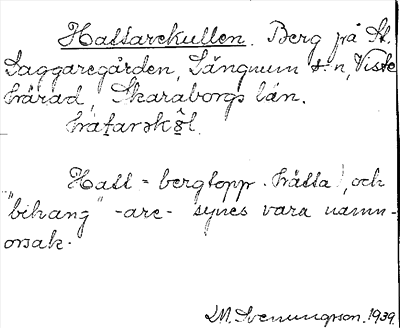 Hattarekullen. Berg på St.
Saggaregården, Långnum s:n, Viste
härad, Skaraborgs län.
Hatt = bergtopp. hätta, och
"bihang" -are- synes vara namn-
orsak.
LM. Svenungsson. 1939.